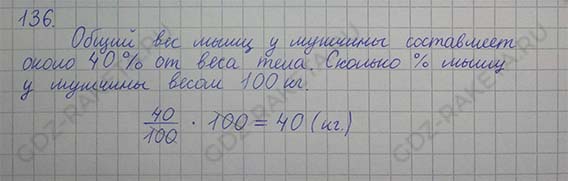 136.
Общий вес мышц у мужчины составляет
около 40% от веса тела. Сколько % мышц
у мужчины весом 100 кг.
40/100 · 100 = 40 (кг.)
GDZ-RAKETA.RU